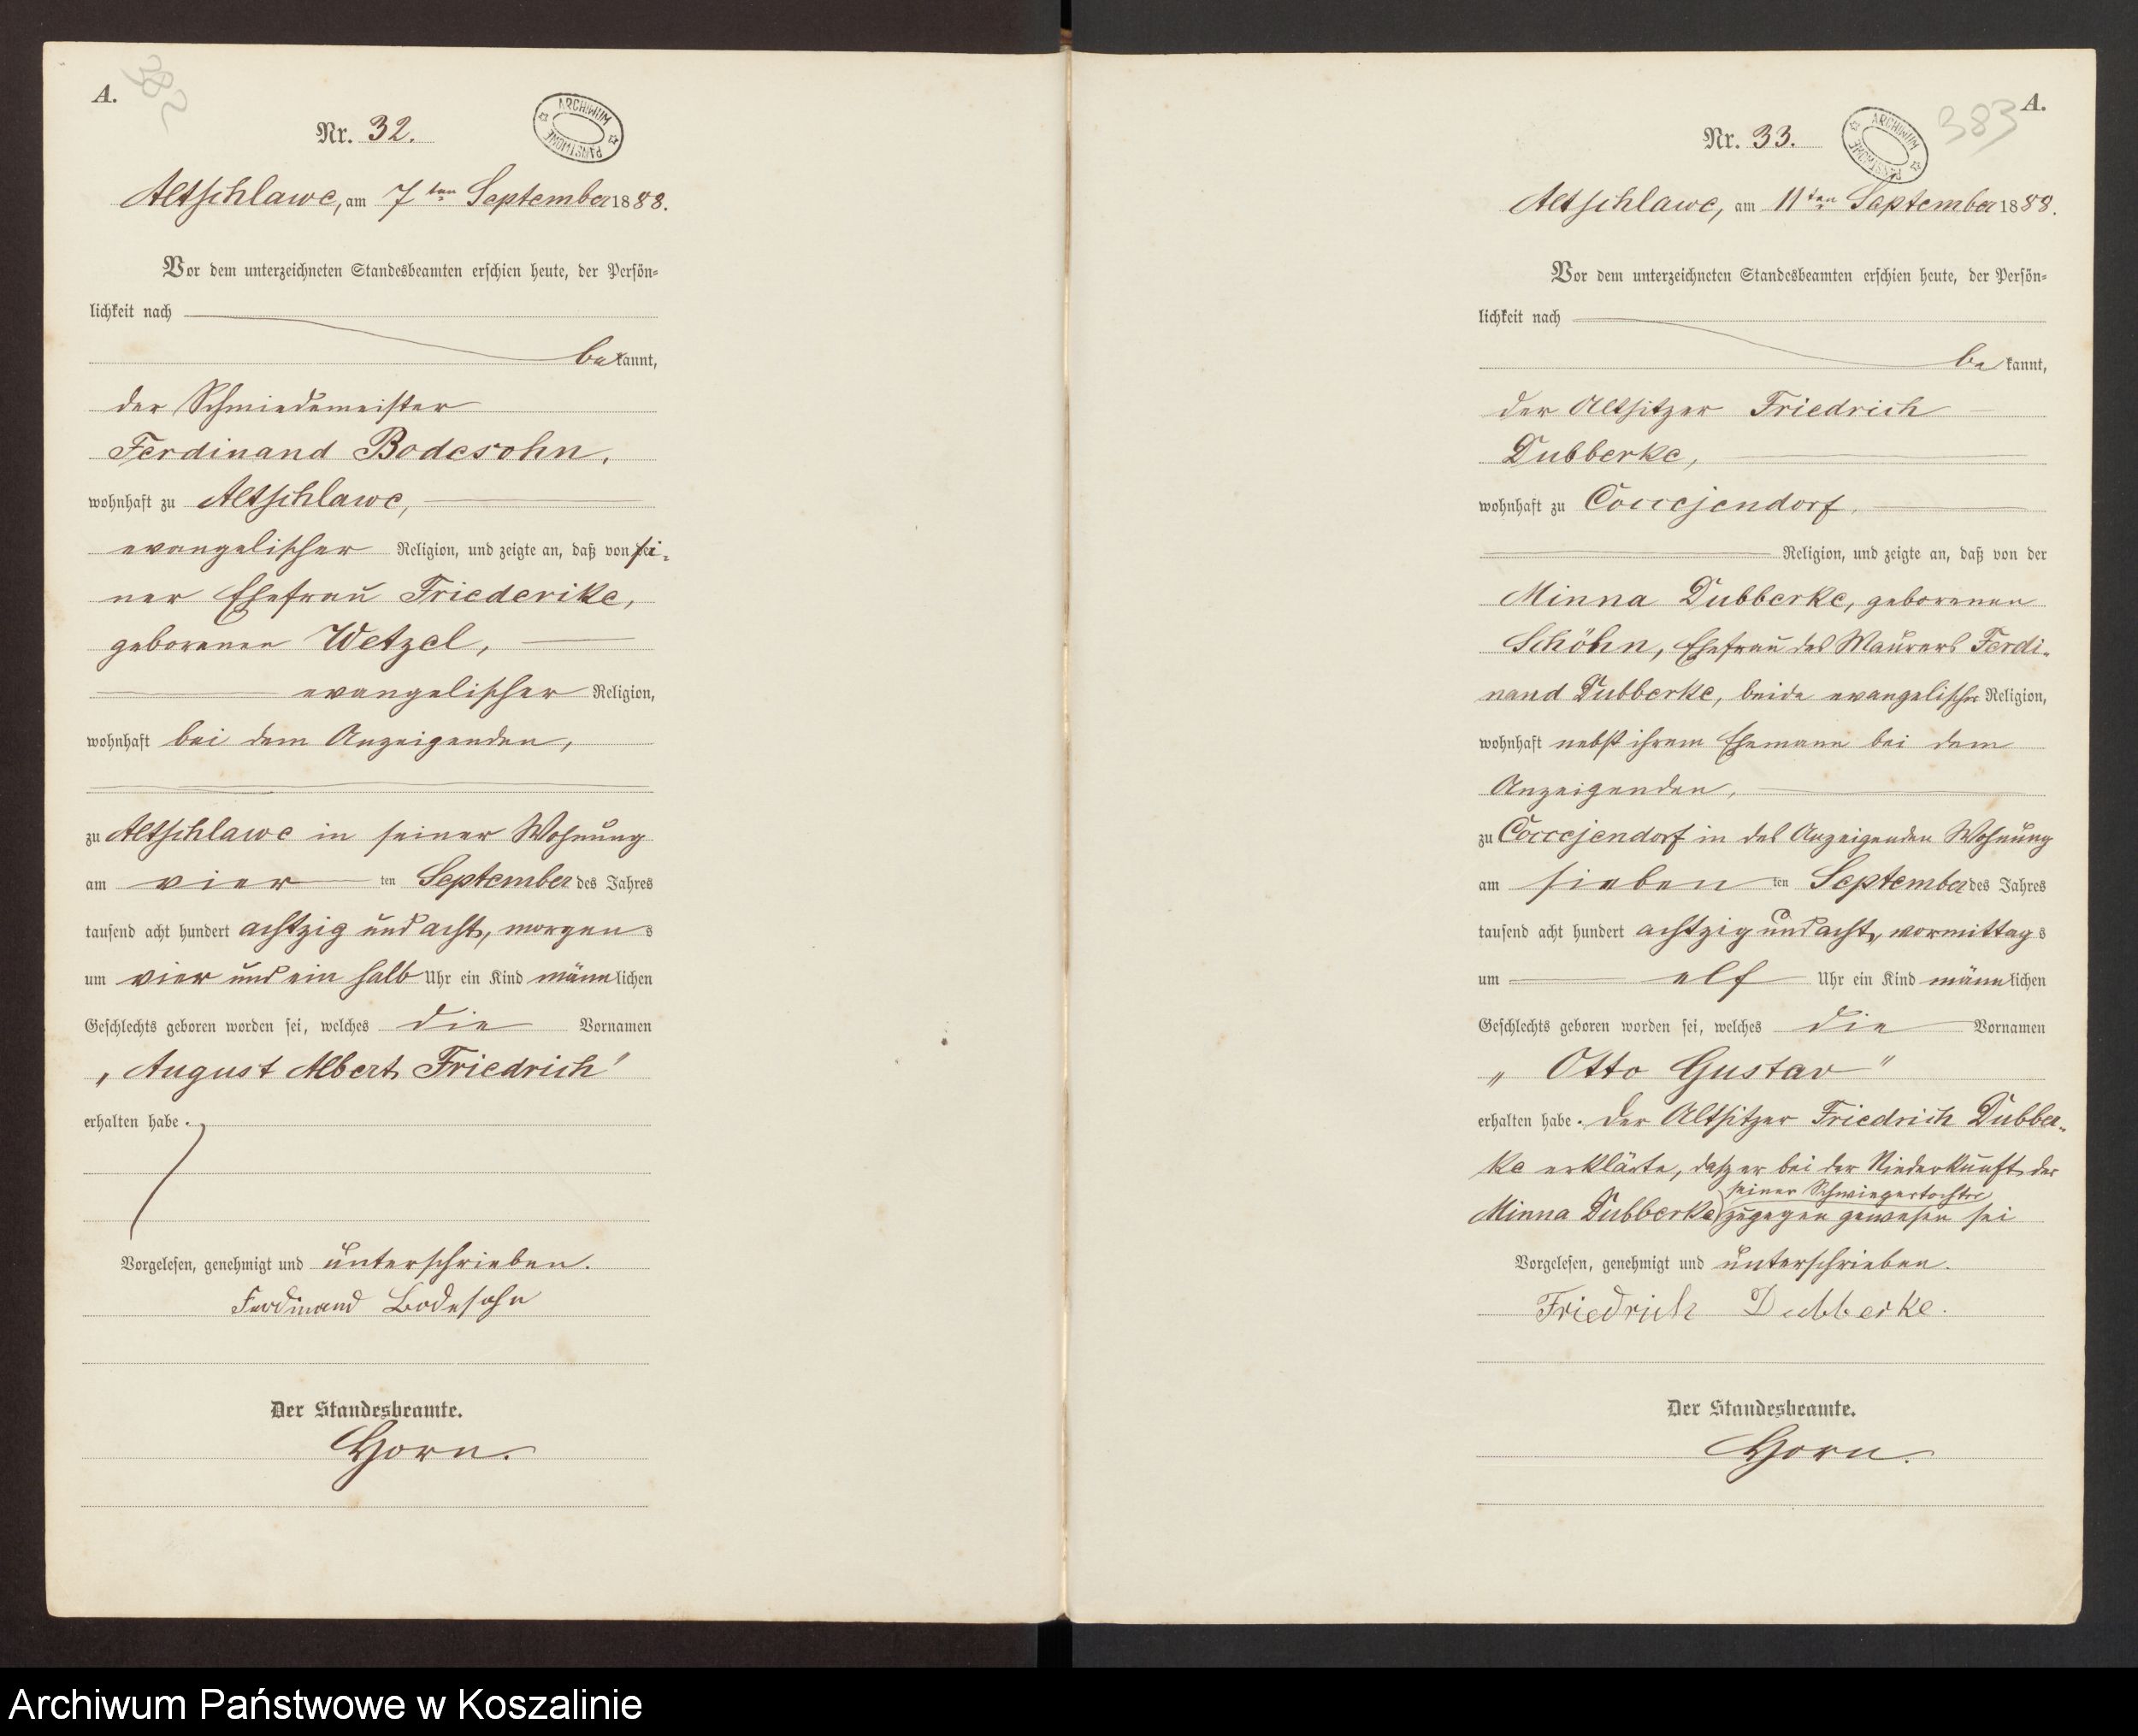 A.
382
Nr. 32.
ARCHIWUM PAŃSTWOWE
Altschlawe, am 7ten September 1888.
Vor dem unterzeichneten Standesbeamten erschien heute, der Persön-
lichkeit nach
bekannt,
der Schmiedemeister
Ferdinand Bodesohn,
wohnhaft zu Altschlawe,
evangelischer Religion, und zeigte an, daß von sei-
ner Ehefrau Friederike,
geborenen Wetzel,
evangelischer Religion,
wohnhaft bei dem Anzeigenden,
zu Altschlawe in seiner Wohnung
am vierten September des Jahres
tausend acht hundert achtzig und acht, morgens
um vier und ein halb Uhr ein Kind männlichen
Geschlechts geboren worden sei, welches die Vornamen
„August Albert Friedrich“
erhalten habe.
Vorgelesen, genehmigt und unterschrieben.
Ferdinand Bodesohn
Der Standesbeamte.
Horn.
A.
383
Nr. 33.
ARCHIWUM PAŃSTWOWE
Altschlawe, am 11ten September 1888.
Vor dem unterzeichneten Standesbeamten erschien heute, der Persön-
lichkeit nach
bekannt,
der Altsitzer Friedrich
Dubberke,
wohnhaft zu Coccejendorf,
Religion, und zeigte an, daß von der
Minna Dubberke, geborenen
Schöhn, Ehefrau des Maurers Ferdi-
nand Dubberke, beide evangelischer Religion,
wohnhaft nebst ihrem Ehemann bei dem
Anzeigenden,
zu Coccejendorf in des Anzeigenden Wohnung
am siebenten September des Jahres
tausend acht hundert achtzig und acht, vormittags
um elf Uhr ein Kind männlichen
Geschlechts geboren worden sei, welches die Vornamen
„Otto Gustav“
erhalten habe. Der Altsitzer Friedrich Dubber-
ke erklärte, daß er bei der Niederkunft der
seiner Schwiegertochter
Minna Dubberke zugegen gewesen sei
Vorgelesen, genehmigt und unterschrieben.
Friedrich Dubberke.
Der Standesbeamte.
Horn.
Archiwum Państwowe w Koszalinie